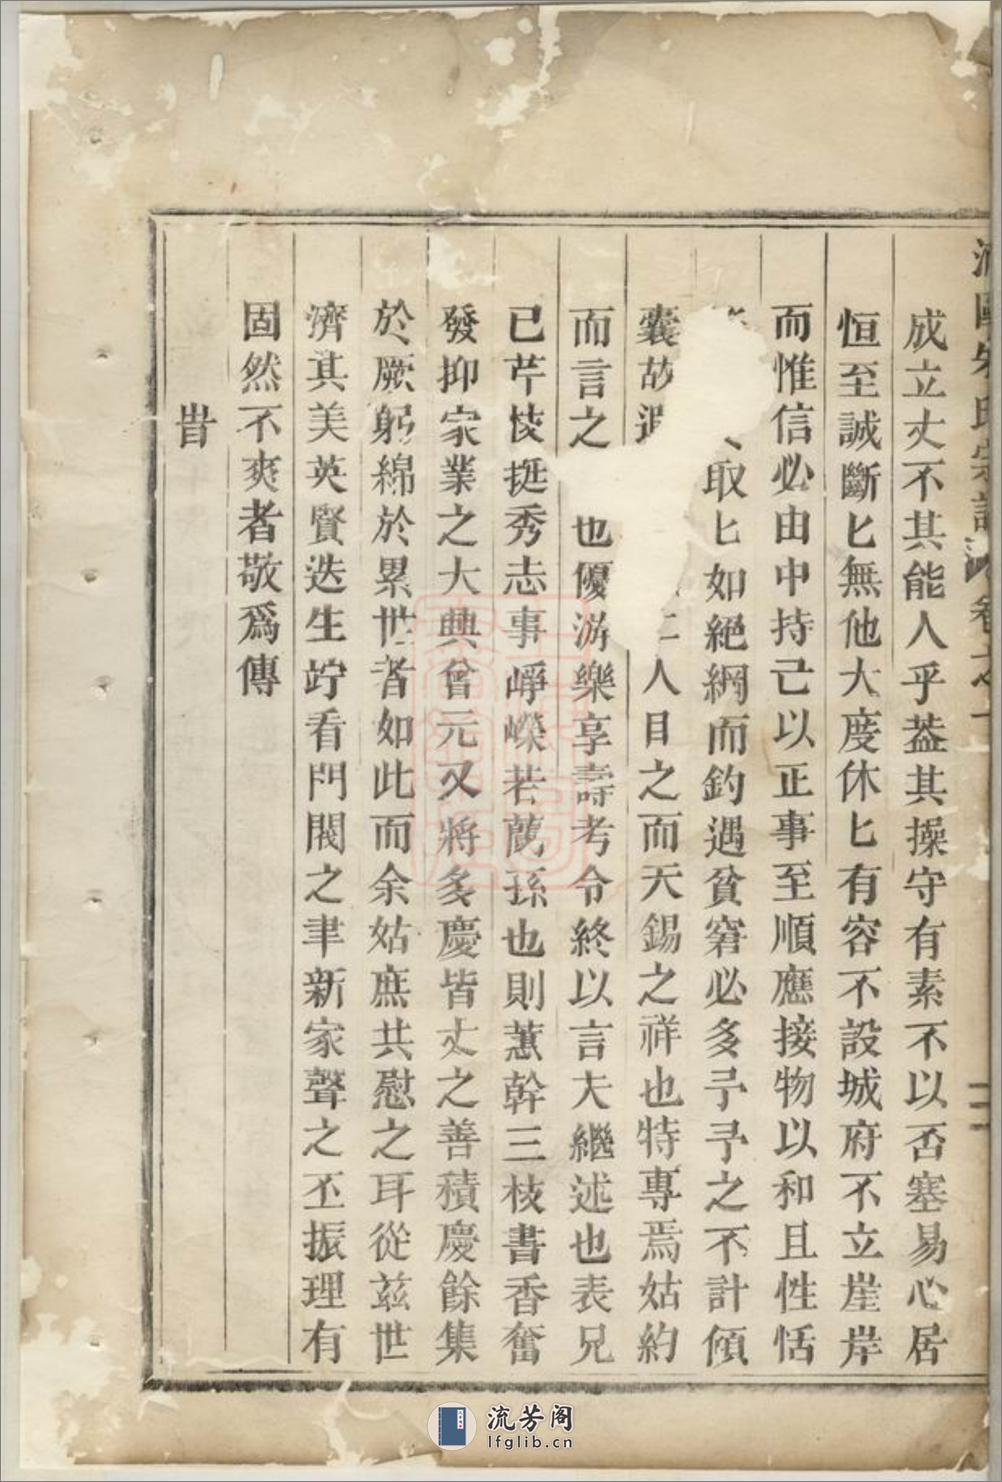 氏宗譜 卷之
成立丈不其能人乎葢其操守有素不以否塞易心居
恒至誠斷匕無他大度休匕有容不設城府不立崖岸
而惟信必由中持己以正事至順應接物以和且性恬
取匕如絕綱而釣遇貧窘必多予予之不計傾
囊故遇 人目之而天錫之祥也特專焉姑約
而言之 也優游樂享壽考令終以言夫繼述也表兄
已芹棱挺秀志事崢嶸若萬孫也則蕙幹三枝書香奮
發抑家業之大典曾元又將多慶皆丈之善積慶餘集
於厥躬綿於累世者如此而余姑庶共慰之耳從玆世
濟其美英賢迭生竚看門閥之聿新家聲之丕振理有
固然不爽者敬爲傳
旹
流芳阁
lfglib.cn